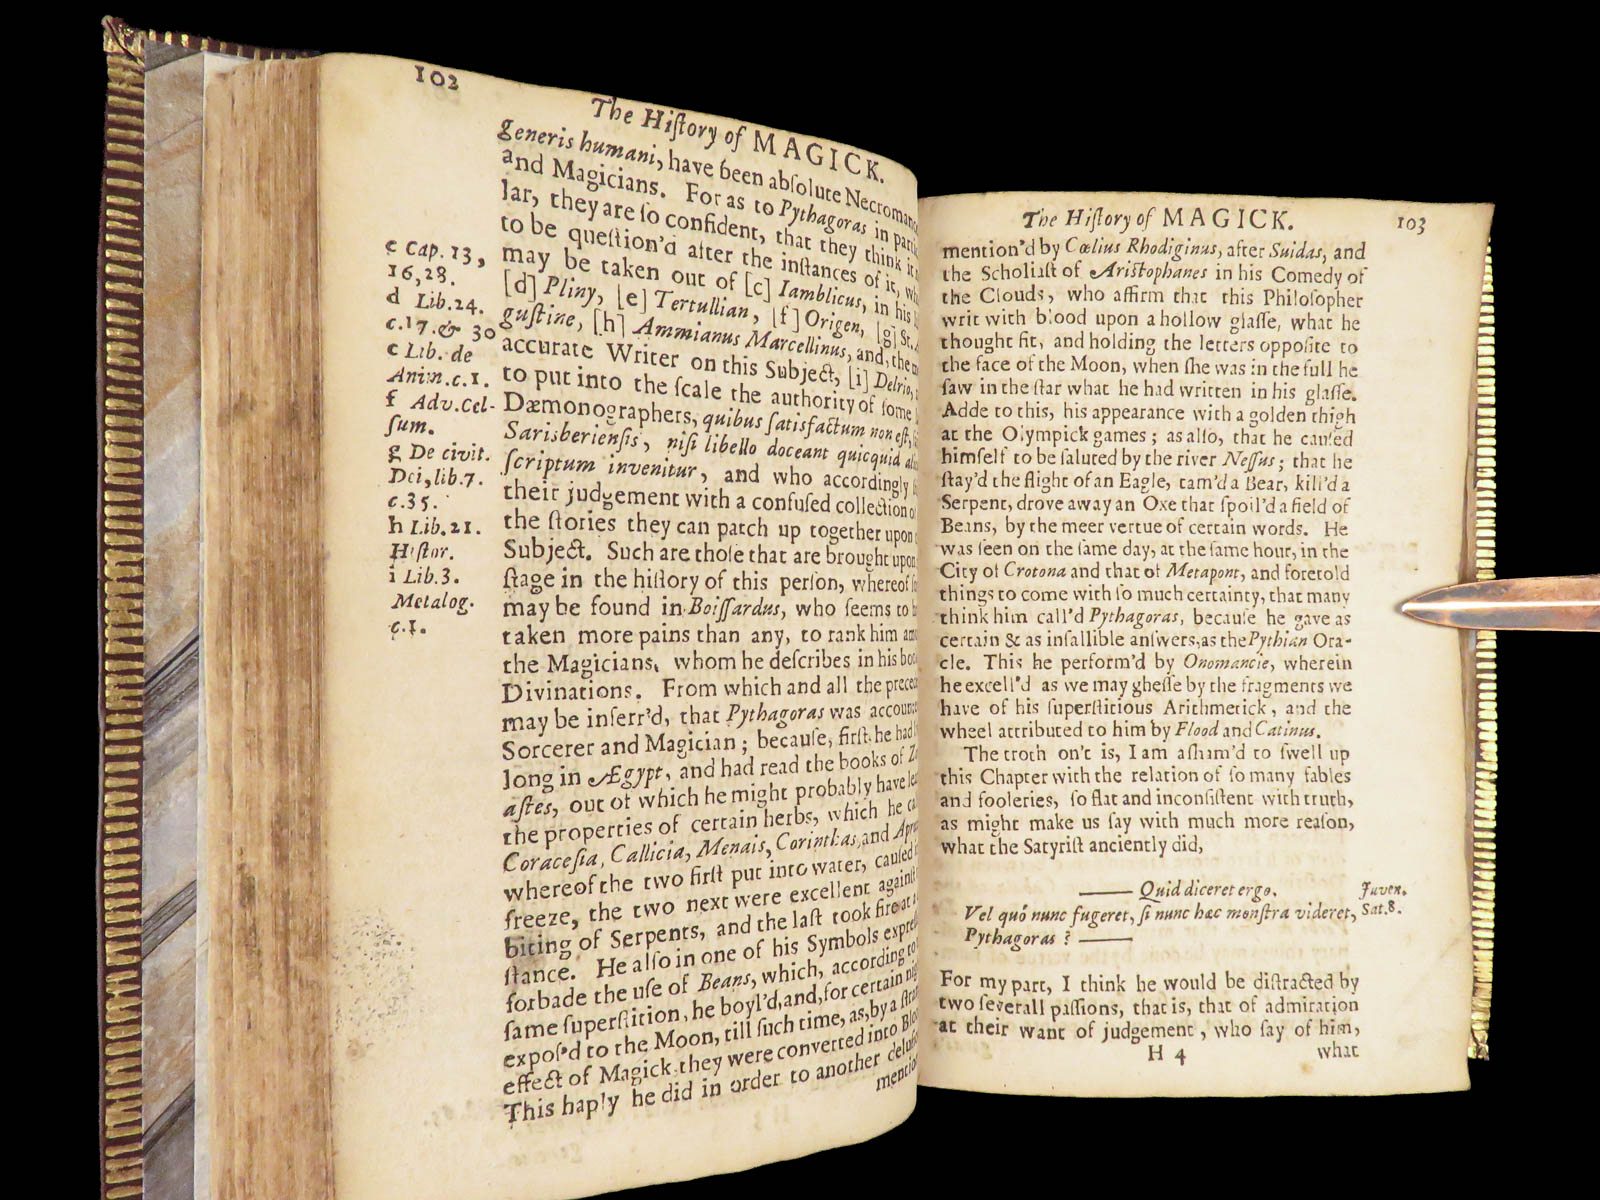 102
The Hiſtory of MAGICK.
generis humani, have been abſolute Necroman
and Magicians. For as to Pythagoras in parti
lar, they are ſo confident, that they think it
to be queſtion'd after the inſtances of it, wh
may be taken out of [c] Iamblicus, in his
[d] Pliny, [e] Tertullian, [f] Origen, [g] St.
guſtine, [h] Ammianus Marcellinus, and, the
accurate Writer on this Subject, [i] Delrio,
to put into the ſcale the authority of ſome
Dæmonographers, quibus ſatisfactum non eſt,
Sarisberienſis, niſi libello doceant quicquid
ſcriptum invenitur, and who accordingly
their judgement with a confuſed collection
the ſtories they can patch up together upon
Subject. Such are thoſe that are brought upon
ſtage in the hiſtory of this perſon, whereof
may be found in Boiſſardus, who ſeems to
taken more pains than any, to rank him
the Magicians, whom he deſcribes in his
Divinations. From which and all the
may be inferr'd, that Pythagoras was
Sorcerer and Magician; becauſe, firſt, he had
long in Ægypt, and had read the books of
aſtes, out of which he might probably have
the properties of certain herbs, which he
Coraceſia, Callicia, Menais, Corinthas, and
whereof the two firſt put into water, cauſed
freeze, the two next were excellent againſt
biting of Serpents, and the laſt took fire at
ſtance. He alſo in one of his Symbols
forbade the uſe of Beans, which, according to
ſame ſuperſtition, he boyl'd, and, for certain
expoſ'd to the Moon, till ſuch time, as, by a
effect of Magick, they were converted into
This haply he did in order to another
c Cap. 13,
16, 28.
d Lib. 24.
c. 17. & 30
e Lib. de
Anim. c. 1.
f Adv. Cel-
ſum.
g De civit.
Dei, lib. 7.
c. 35.
h Lib. 21.
Hiſtor.
i Lib. 3.
Metalog.
c. 1.
The Hiſtory of MAGICK. 103
mention'd by Cœlius Rhodiginus, after Suidas, and
the Scholiaſt of Ariſtophanes in his Comedy of
the Clouds, who affirm that this Philoſopher
writ with blood upon a hollow glaſſe, what he
thought fit, and holding the letters oppoſite to
the face of the Moon, when ſhe was in the full he
ſaw in the ſtar what he had written in his glaſſe.
Adde to this, his appearance with a golden thigh
at the Olympick games; as alſo, that he cauſed
himſelf to be ſaluted by the river Neſſus; that he
ſtay'd the flight of an Eagle, tam'd a Bear, kill'd a
Serpent, drove away an Oxe that ſpoil'd a field of
Beans, by the meer vertue of certain words. He
was ſeen on the ſame day, at the ſame hour, in the
City of Crotona and that of Metapont, and foretold
things to come with ſo much certainty, that many
think him call'd Pythagoras, becauſe he gave as
certain & as infallible anſwers, as the Pythian Ora-
cle. This he perform'd by Onomancie, wherein
he excell'd as we may gheſſe by the fragments we
have of his ſuperſtitious Arithmetick, and the
wheel attributed to him by Flood and Catinus.
The troth on't is, I am aſham'd to ſwell up
this Chapter with the relation of ſo many fables
and fooleries, ſo flat and inconſiſtent with truth,
as might make us ſay with much more reaſon,
what the Satyriſt anciently did,
—— Quid diceret ergo.
Vel quó nunc fugeret, ſi nunc hæc monſtra videret,
Pythagoras? ——
Juven.
Sat. 8.
For my part, I think he would be diſtracted by
two ſeverall paſſions, that is, that of admiration
at their want of judgement, who ſay of him,
H 4 what